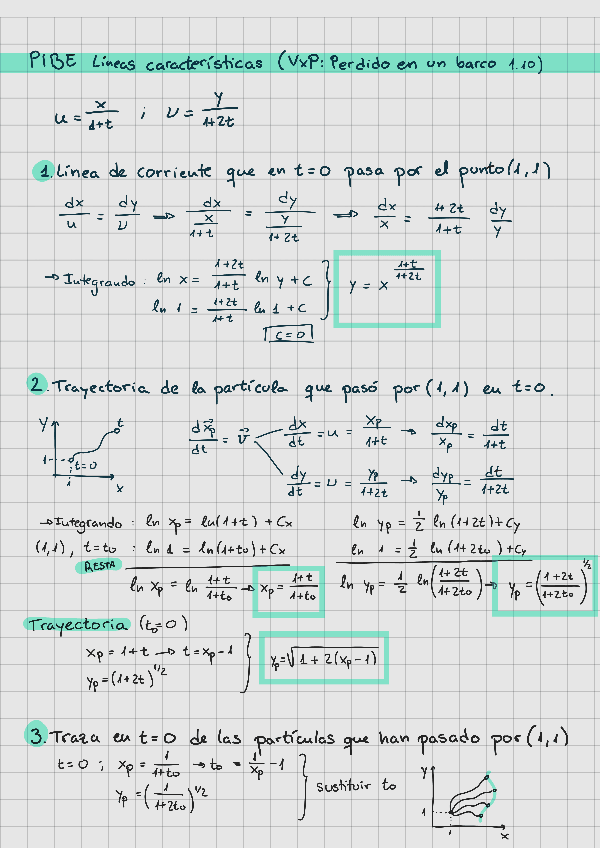 PIBE Líneas características (VxP: Perdido en un barco 1.10)
u = x/(1+t) ; v = y/(1+2t)
1. Línea de corriente que en t=0 pasa por el punto (1,1)
dx/u = dy/v → dx/(x/(1+t)) = dy/(y/(1+2t)) → dx/x = (1+2t)/(1+t) dy/y
→ Integrando: ln x = (1+2t)/(1+t) ln y + C
ln 1 = (1+2t)/(1+t) ln 1 + C
C=0
y = x^((1+t)/(1+2t))
2. Trayectoria de la partícula que pasó por (1,1) en t=0.
y t
1 t=0
1 x
dx⃗p/dt = v⃗
dx/dt = u = xp/(1+t) → dxp/xp = dt/(1+t)
dy/dt = v = yp/(1+2t) → dyp/yp = dt/(1+2t)
→ Integrando: ln xp = ln(1+t) + Cx ln yp = 1/2 ln(1+2t) + Cy
(1,1), t=to : ln 1 = ln(1+to) + Cx ln 1 = 1/2 ln(1+2to) + Cy
RESTA
ln xp = ln (1+t)/(1+to) → xp = (1+t)/(1+to) ln yp = 1/2 ln((1+2t)/(1+2to)) → yp = ((1+2t)/(1+2to))^1/2
Trayectoria (to=0)
xp = 1+t → t = xp-1
yp = (1+2t)^1/2
yp = √(1+2(xp-1))
3. Traza en t=0 de las partículas que han pasado por (1,1)
t=0 ; xp = 1/(1+to) → to = 1/xp - 1
yp = (1/(1+2to))^1/2
sustituir to
y
1
1 x